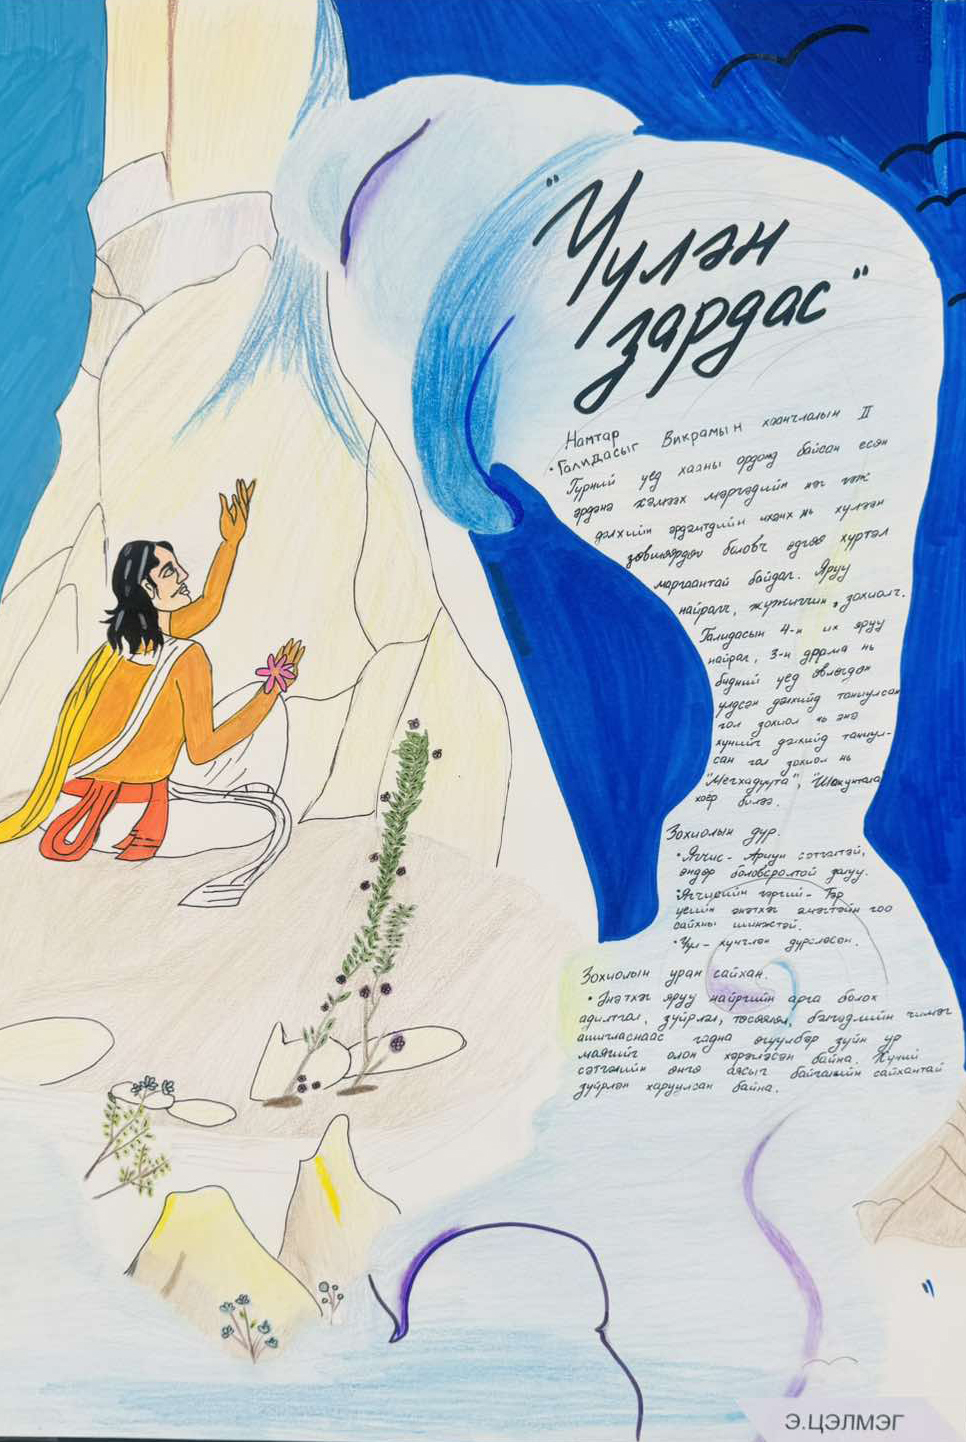 "Үүлэн
зардас"
Намтар
• Галидасыг Викрамын хаанчлалын II
Гүрний үед хааны ордонд байсан есөн
эрдэнэ хэмээх мэргэдийн нэг гэж
дэлхийн эрдэмтдийн ихэнх нь хүлээн
зөвшөөрдөг боловч өдгөө хүртэл
маргаантай байдаг. Яруу
найрагч, жүжигчин, зохиолч.
Галидасын 4-н их яруу
найраг, 3-н драма нь
бидний үед өвлөгдөн
үлдсэн дэлхийд таниулсан
гол зохиол нь энэ
хүнийг дэлхийд таниул-
сан гол зохиол нь
"Мегхадуута", "Шакунтала"
хоёр билээ.
Зохиолын дүр.
• Ягчис - Ариун сэтгэлтэй,
өндөр боловсролтой залуу.
• Ягчисийн гэргий - Тэр
үеийн энэтхэг эмэгтэйн гоо
сайхны шинжтэй.
• Үүл - хүнчлэн дүрсэлсэн.
Зохиолын уран сайхан.
• Энэтхэг яруу найргийн арга болох
адилтгал, зүйрлэл, төсөөлөл, бэлгэдлийн чимэг
ашигласнаас гадна өгүүлбэр зүйн ур
маягийг олон хэрэглэсэн байна. Хүний
сэтгэлийн өнгө аясыг байгалийн сайхантай
зүйрлэн харуулсан байна.
Э.ЦЭЛМЭГ